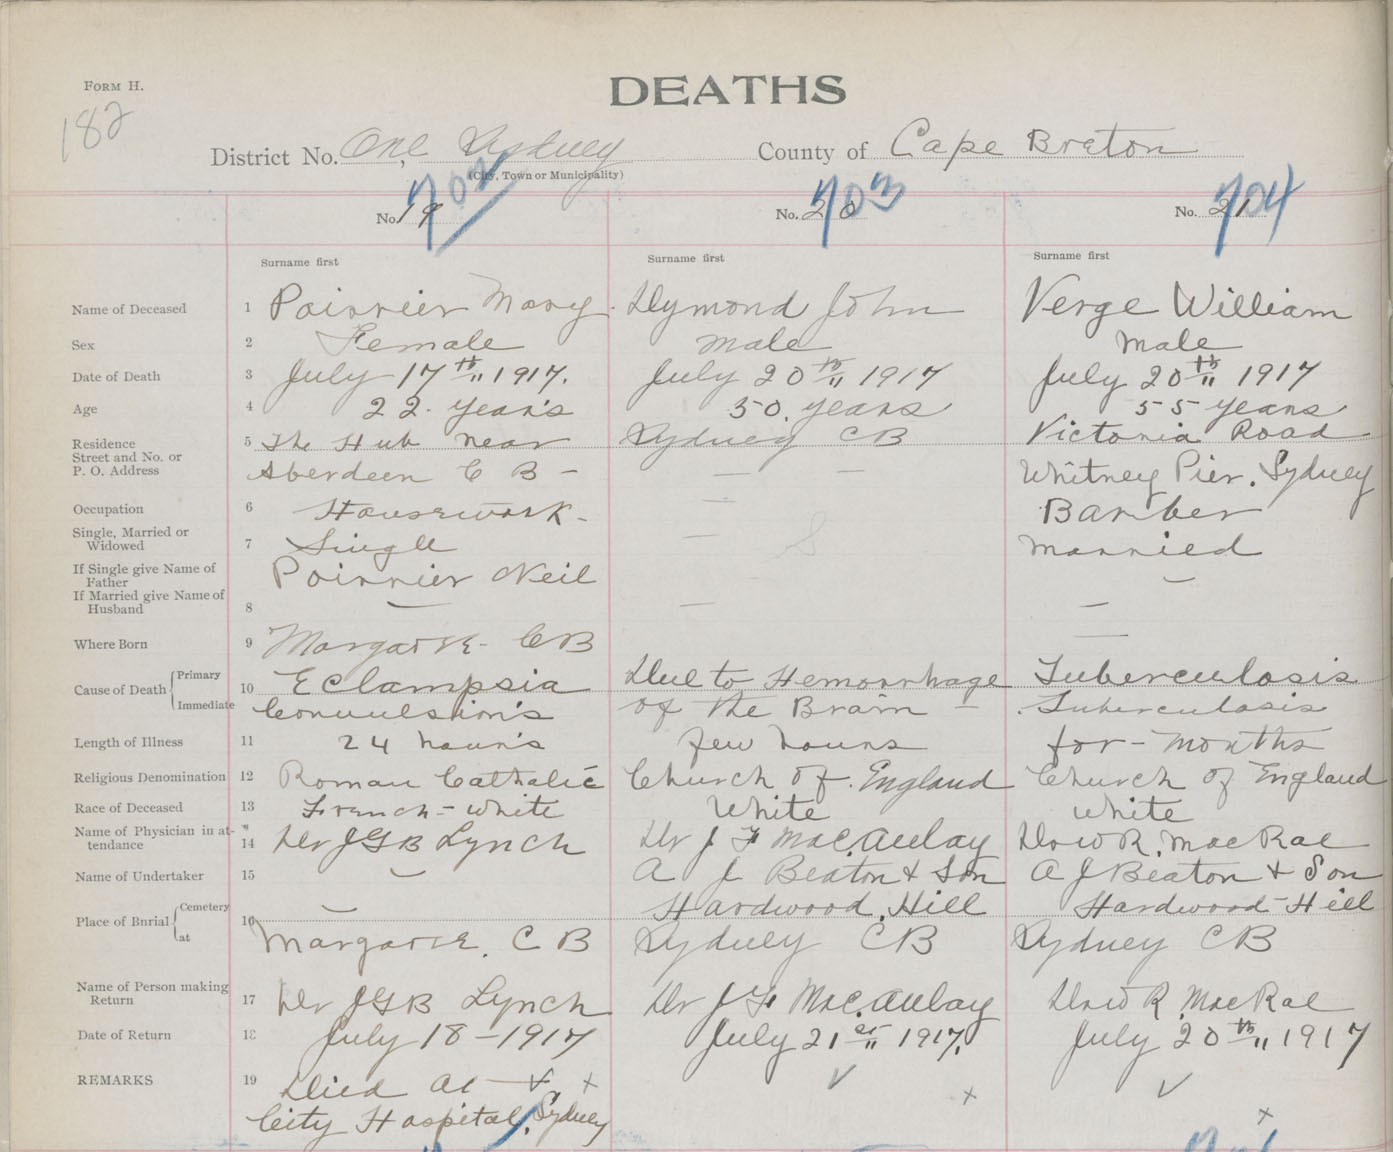 FORM H.
DEATHS
182
District No. One, Sydney County of Cape Breton
(City, Town or Municipality)
702 703 704
No. 19 No. 20 No. 21
Surname first Surname first Surname first
Name of Deceased 1 Poirrier Mary Dymond John Verge William
Sex 2 Female male male
Date of Death 3 July 17th 1917. July 20th 1917 July 20th 1917
Age 4 22. Year's 50. years 55 years
Residence 5 The Hub near Sydney CB Victoria Road
Street and No. or
P. O. Address Aberdeen C B - — — Whitney Pier. Sydney
Occupation 6 Housework - — Barber
Single, Married or
Widowed 7 Single — S married
If Single give Name of
Father Poirrier Neil —
If Married give Name of
Husband 8 — — —
Where Born 9 Margaree - CB —
Cause of Death Primary 10 Eclampsia Due to Hemorrhage Tuberculosis
Immediate Convulsion's of the Brain — Tuberculosis
Length of Illness 11 24 hour's few hours for - months
Religious Denomination 12 Roman Catholic Church of England Church of England
Race of Deceased 13 French - white White white
Name of Physician in at-
tendance 14 Dr JGB Lynch Dr J F MacAulay D R. MacRae
Name of Undertaker 15 — A J Beaton & Son A J Beaton & Son
Place of Burial Cemetery — Hardwood Hill Hardwood Hill
at 16 Margaree. C B Sydney CB Sydney CB
Name of Person making
Return 17 Dr JGB Lynch Dr J F MacAulay D R. MacRae
Date of Return 18 July 18 - 1917 July 21st 1917. July 20th 1917
REMARKS 19 Died at
City Hospital, Sydney